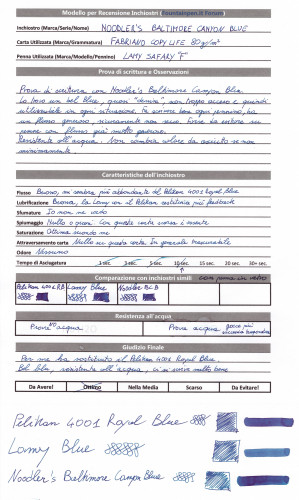 Modello per Recensione Inchiostri (Fountainpen.it Forum)
Inchiostro (Marca/Serie/Nome) NOODLER'S BALTIMORE CANYON BLUE
Carta Utilizzata (Marca/Grammatura) FABRIANO COPY LIFE 80g/m²
Penna Utilizzata (Marca/Modello/Pennino) LAMY SAFARY "F"
Prova di scrittura e Osservazioni
Prova di scrittura con Noodler's Baltimore Canyon Blue
La trovo un bel blu, quasi non troppo acceso e quindi
utilizzabile in ogni situazione. Fa scorrere bene ogni pennino, ha
un flusso generoso, sicuramente non secco. Forse da evitare su
penne con flusso già molto generoso.
Resistente all'acqua. Non cambia colore da asciutto se non
minimamente.
Caratteristiche dell'inchiostro
Flusso Buono, mi sembra più abbondante del Pelikan 4001 Royal Blue
Lubrificazione Buona, la Lamy con il Pelikan restituiva più feedback
Sfumature Io non ne vedo
Spiumaggio Nullo o quasi. Con questa carta
Saturazione Ottima secondo me
Attraversamento carta Nullo su questa carta. In generale trascurabile
Odore Nessuno
Tempo di Asciugatura 1 sec. 3 sec. 5 sec. 10 sec. 15 sec. 20 sec. 30+ sec.
Comparazione con inchiostri simili
Pelikan 4001 R.B Lamy Blue Noodler B.C.B
Resistenza all'acqua
Prova NO acqua Prova acqua
Giudizio Finale
Per me ha sostituito il Pelikan 4001 Royal Blue.
Bel blu, resistente all'acqua, ci si scrive molto bene
Da Avere! Ottimo Nella Media Scarso Da Evitare!
Pelikan 4001 Royal Blue
Lamy Blue
Noodler's Baltimore Canyon Blue